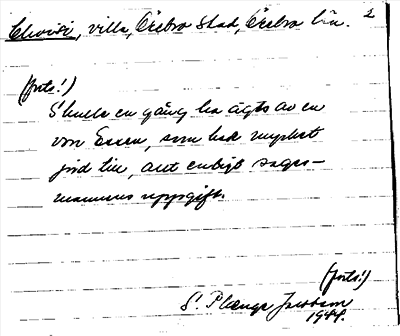 Choisi, villa, Örebro stad, Örebro län. 2
(forts!)
Skulle en gång ha ägts av en
von Essen, som har mycket
jord här, allt enligt sages-
mannens uppgift.
(forts!)
S. Plænge Jacobson
1944.